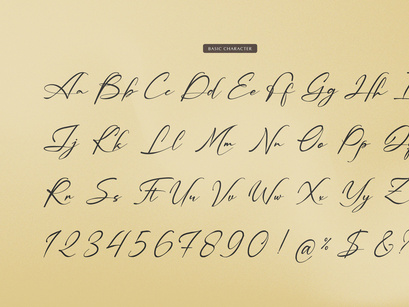 BASIC CHARACTER
Aa Bb Cc Dd Ee Ff Gg Hh I
Jj Kk Ll Mm Nn Oo Pp
Rr Ss Tt Uu Vv Ww Xx Yy Z
1234567890! @ % $ &